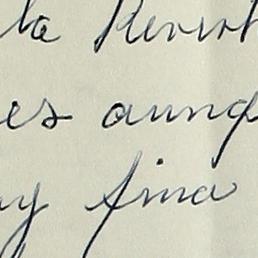 la Revist
es aunq
y fina